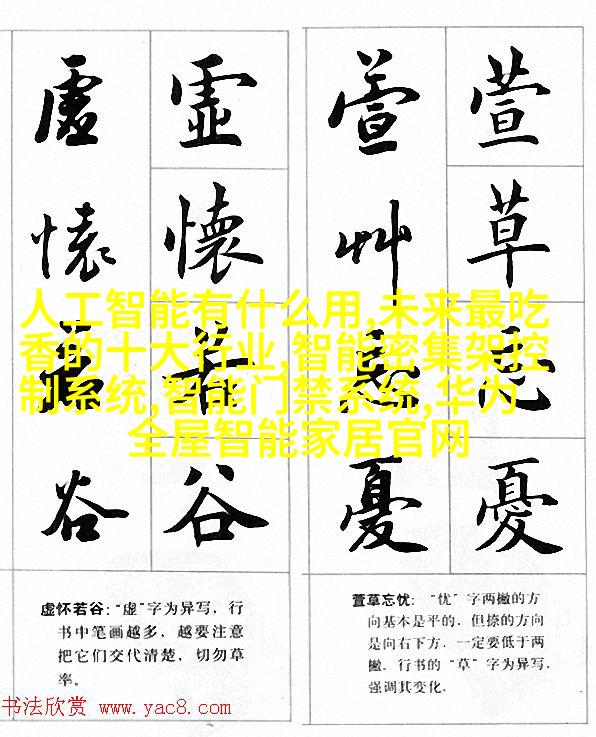 虚 虛 萱 萱
懷 懷 艸 草
若 若 忘 忘
谷 谷 憂 憂
人工智能有什么用,未来最吃
香的十大行业,智能密集架控
制系统,智能门禁系统,华为
全屋智能家居官网
虚怀若谷:“虚”字为异写，行
书中笔画越多，越要注意
把它们交代清楚，切勿草
率。
萱草忘忧：“忧”字两撇的方
向基本是平的，但捺的方向
是向右下方，一定要低于两
撇。行书的“草”字为异写，
强调其变化。
书法欣赏 www.yac8.com